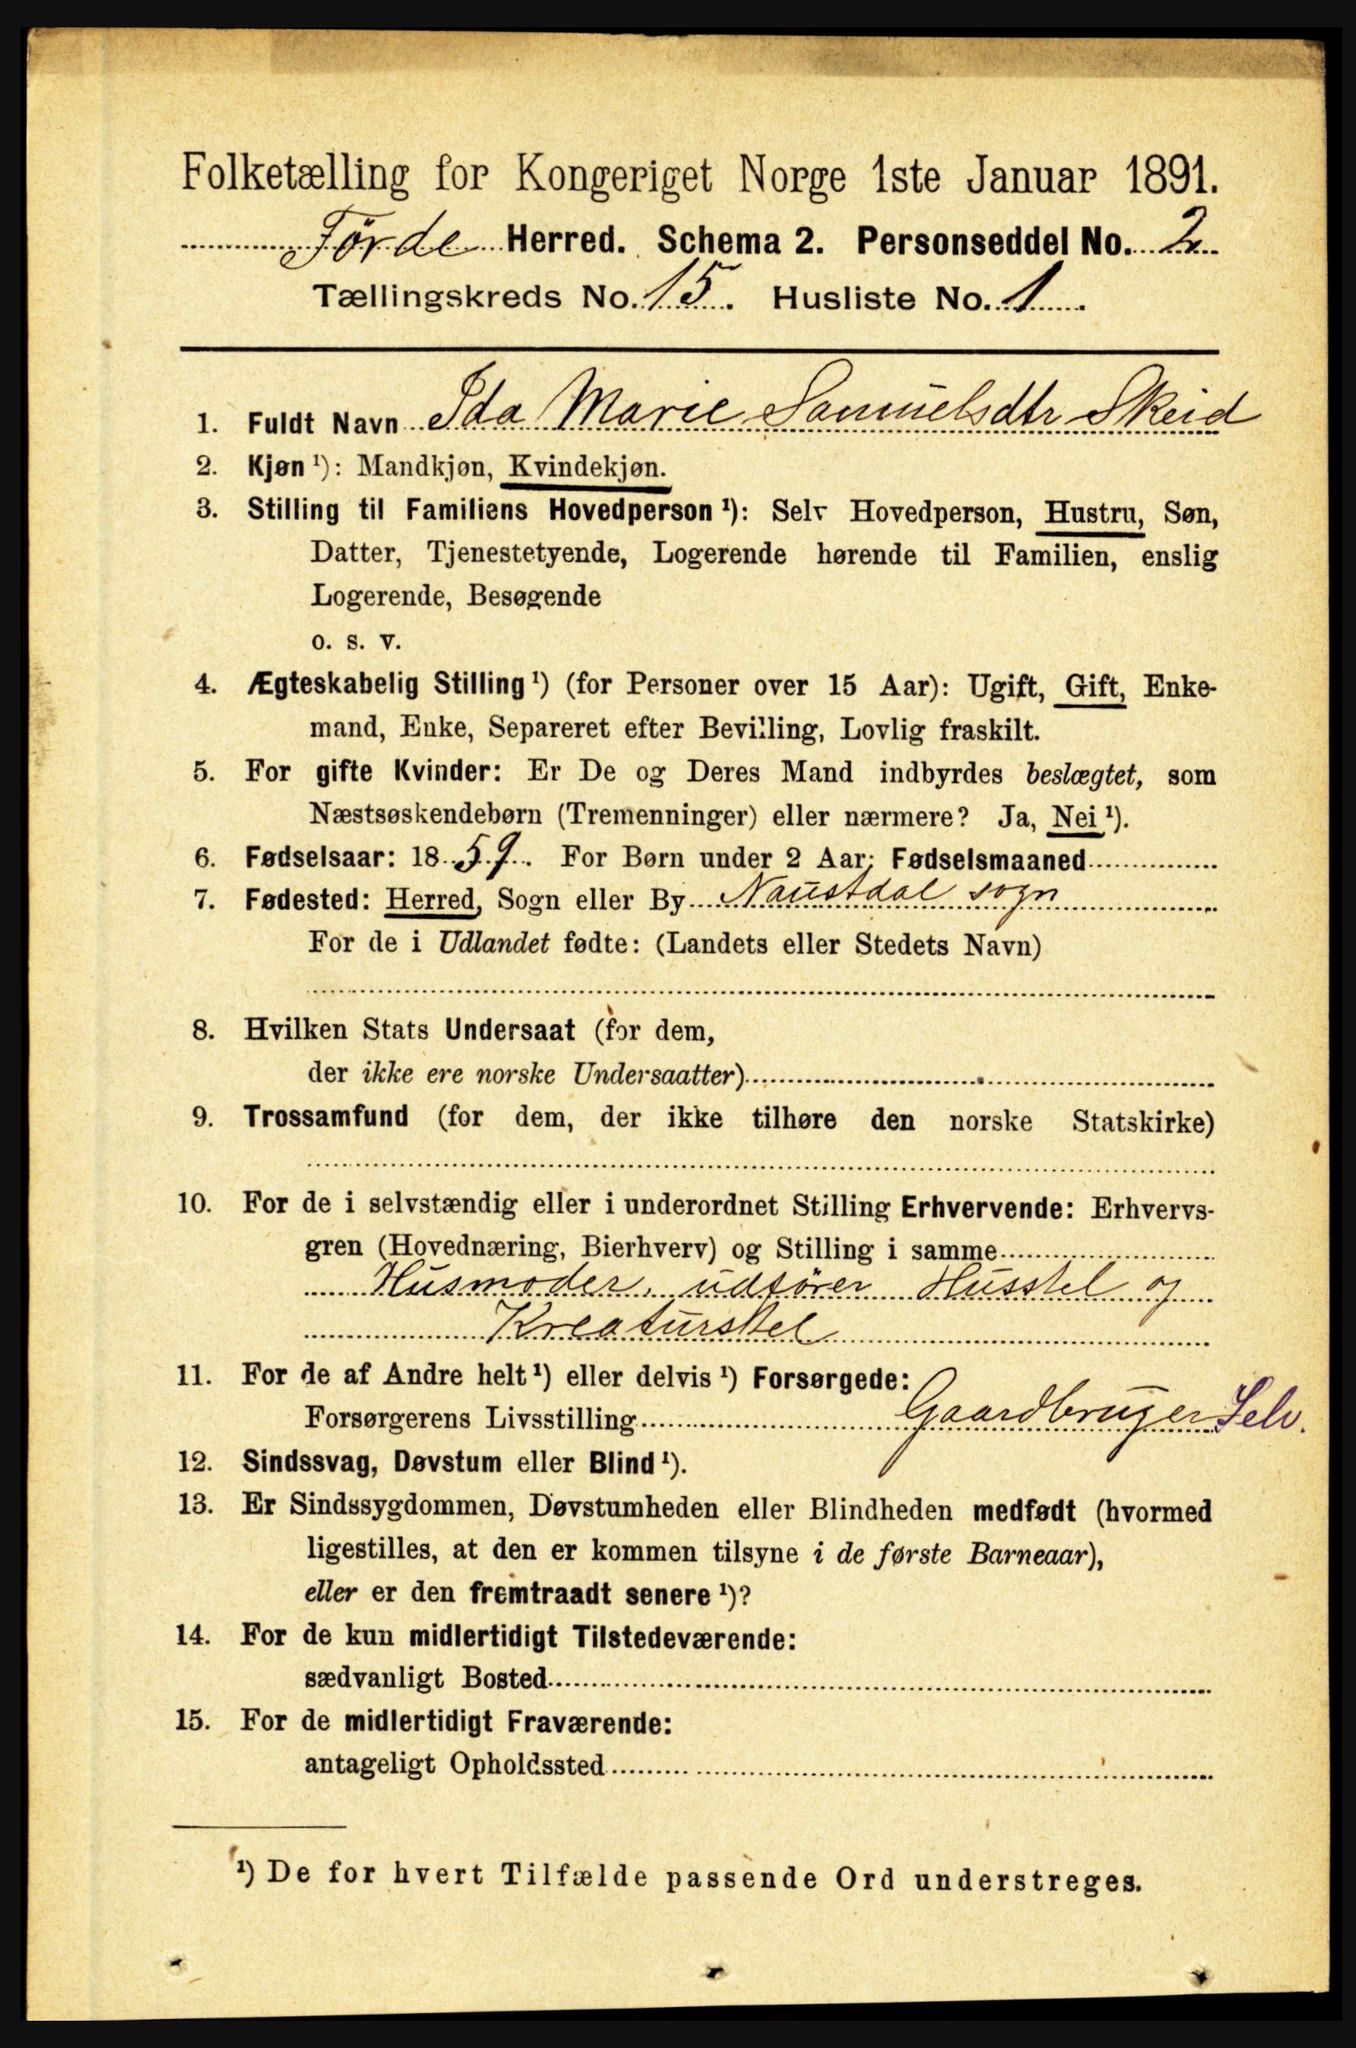 Folketælling for Kongeriget Norge 1ste Januar 1891.
Førde Herred. Schema 2. Personseddel No. 2
Tællingskreds No. 15. Husliste No. 1
1. Fuldt Navn Ida Marie Samuelsdtr Skeid
2. Kjøn ¹): Mandkjøn, Kvindekjøn.
3. Stilling til Familiens Hovedperson ¹): Selv Hovedperson, Hustru, Søn,
Datter, Tjenestetyende, Logerende hørende til Familien, enslig
Logerende, Besøgende
o. s. v.
4. Ægteskabelig Stilling ¹) (for Personer over 15 Aar): Ugift, Gift, Enke-
mand, Enke, Separeret efter Bevilling, Lovlig fraskilt.
5. For gifte Kvinder: Er De og Deres Mand indbyrdes beslægtet, som
Næstsøskendebørn (Tremenninger) eller nærmere? Ja, Nei ¹).
6. Fødselsaar: 1859. For Børn under 2 Aar: Fødselsmaaned
7. Fødested: Herred, Sogn eller By Naustdal sogn
For de i Udlandet fødte: (Landets eller Stedets Navn)
8. Hvilken Stats Undersaat (for dem,
der ikke ere norske Undersaatter)
9. Trossamfund (for dem, der ikke tilhøre den norske Statskirke)
10. For de i selvstændig eller i underordnet Stilling Erhvervende: Erhvervs-
gren (Hovednæring, Bierhverv) og Stilling i samme
Husmoder, udfører Husstel og
Kreaturstel
11. For de af Andre helt ¹) eller delvis ¹) Forsørgede:
Forsørgerens Livsstilling Gaardbruger Selv.
12. Sindssvag, Døvstum eller Blind ¹).
13. Er Sindssygdommen, Døvstumheden eller Blindheden medfødt (hvormed
ligestilles, at den er kommen tilsyne i de første Barneaar),
eller er den fremtraadt senere ¹)?
14. For de kun midlertidigt Tilstedeværende:
sædvanligt Bosted
15. For de midlertidigt Fraværende:
antageligt Opholdssted
¹) De for hvert Tilfælde passende Ord understreges.